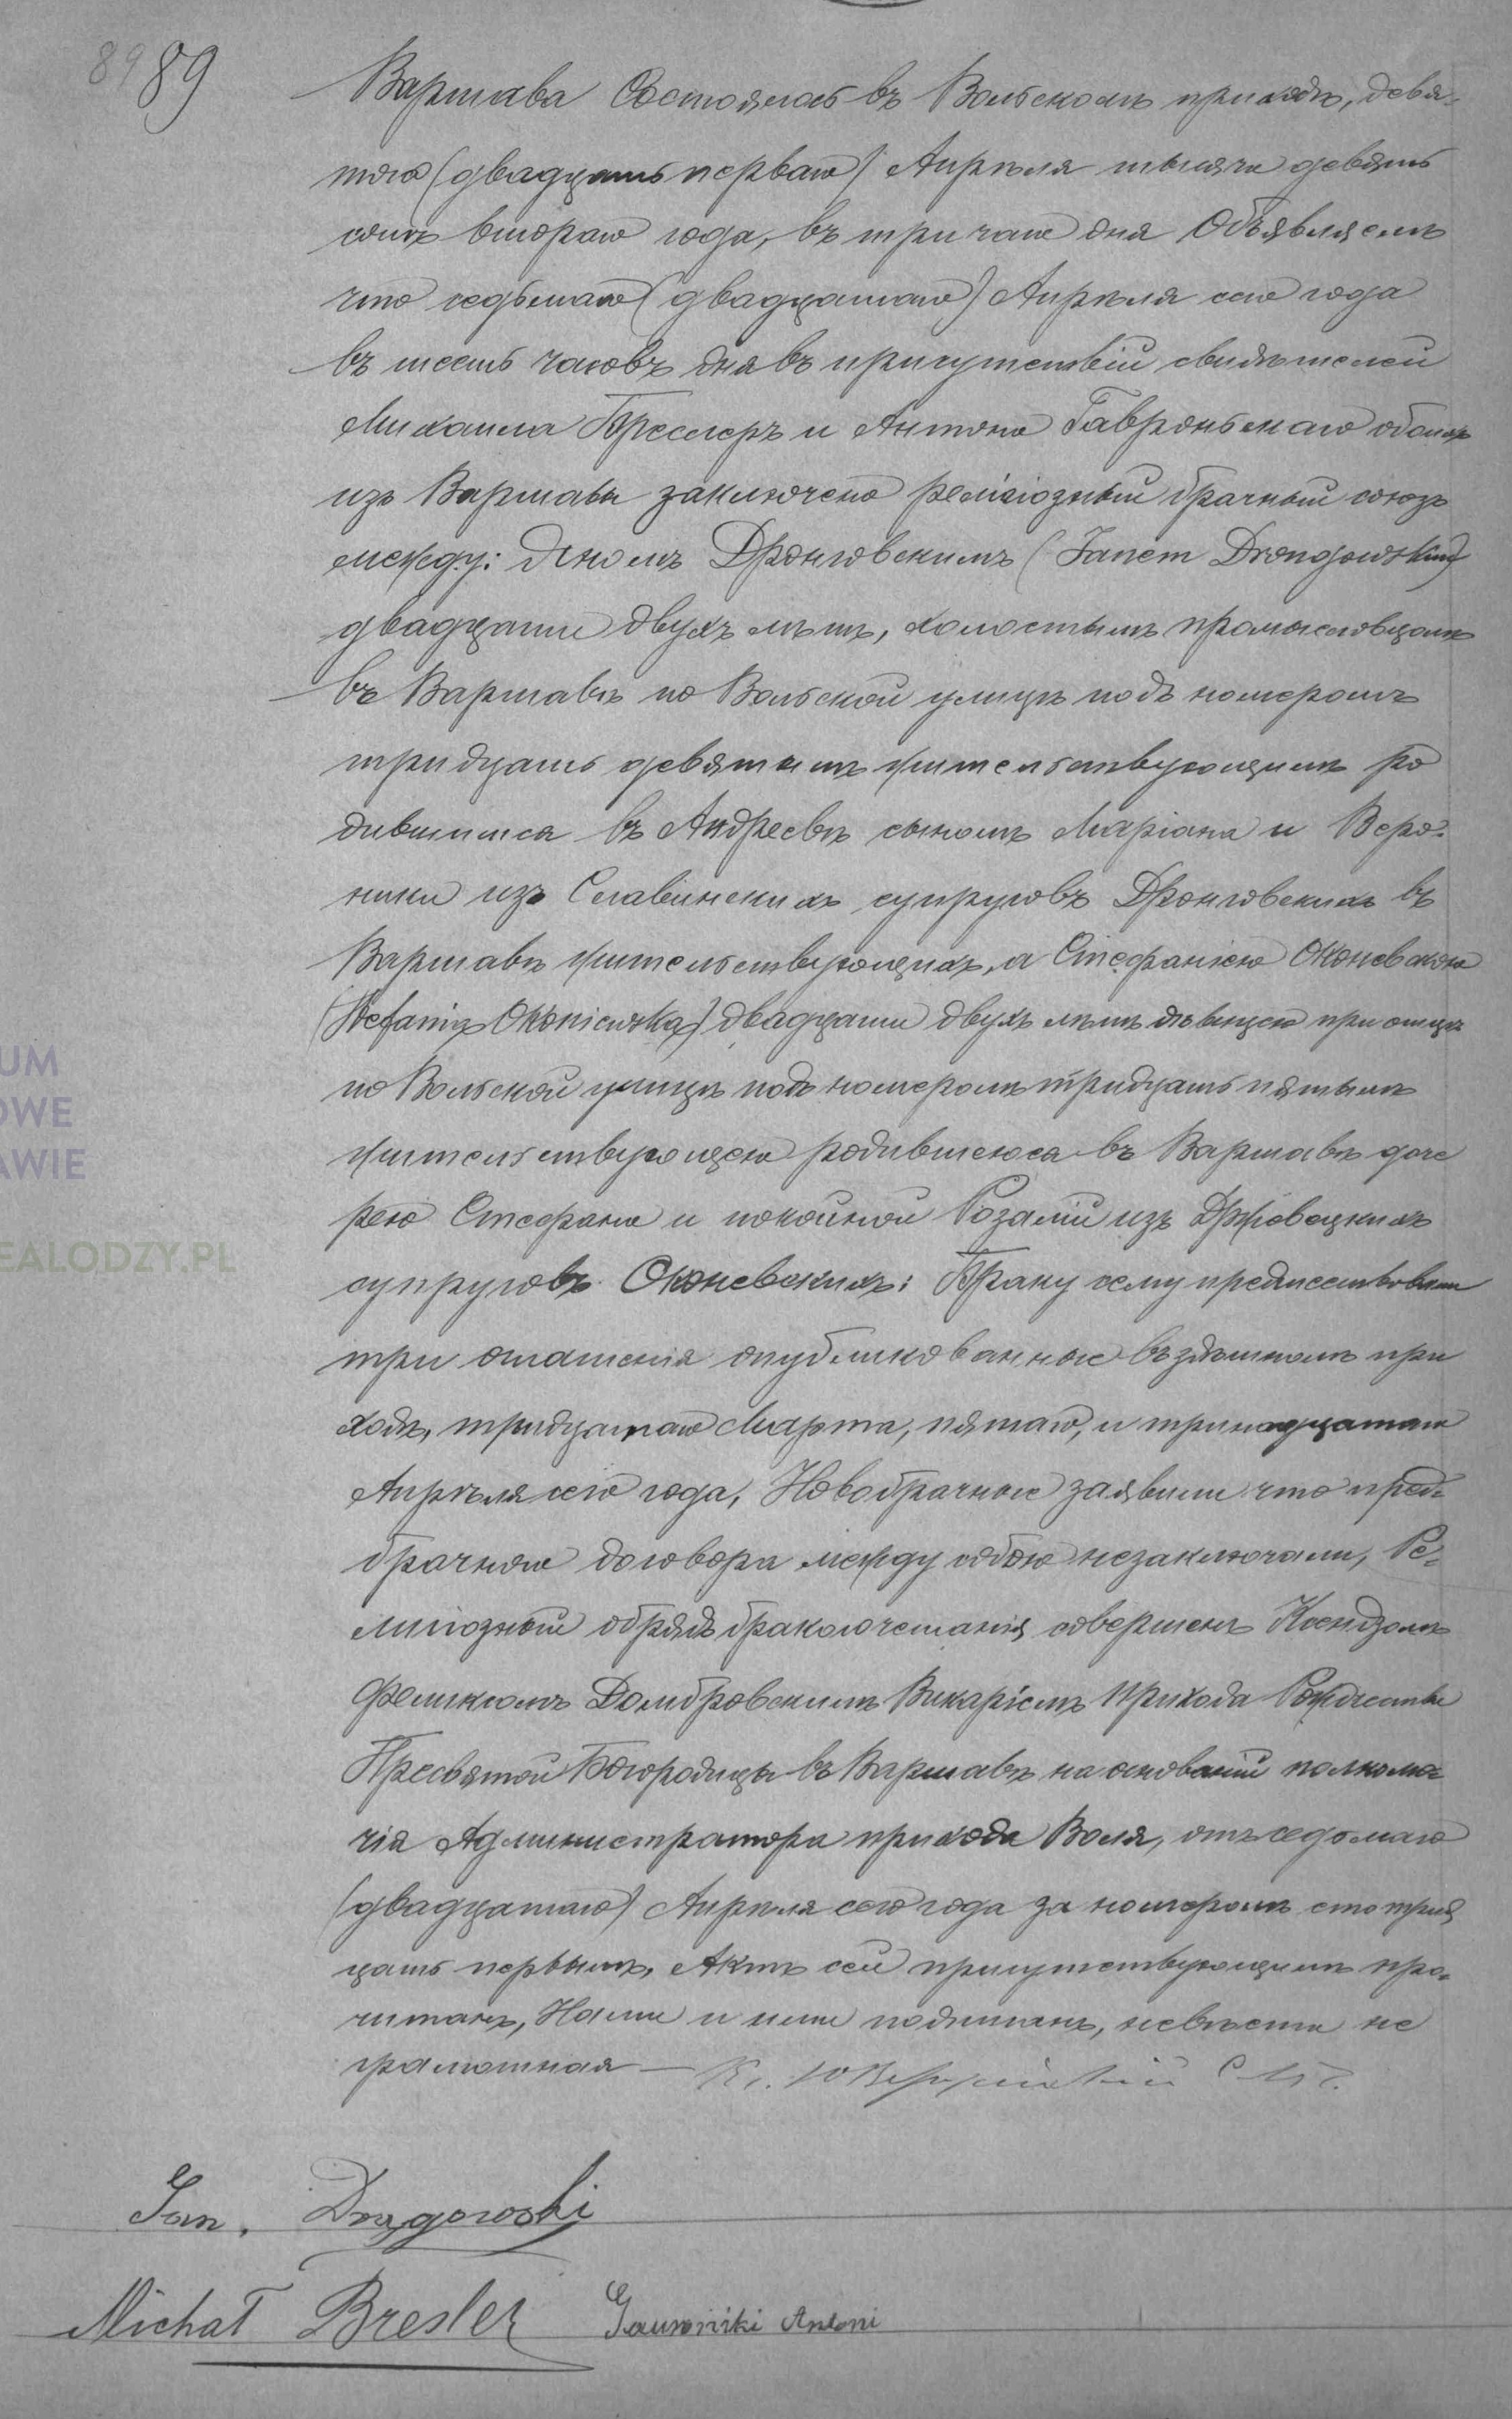 89 89
Варшава Состоялось въ Вольскомъ приходѣ, девя-
таго (двадцать перваго) Апрѣля тысяча девять
сотъ втораго года, въ три часа дня Объявляемъ
что седьмаго (двадцатаго) Апрѣля сего года
въ шесть часовъ дня въ присутствіи свидѣтелей
Михаила Бреслеръ и Антона Гавроньскаго обоихъ
изъ Варшавы заключено религіозный брачный союзъ
между: Яномъ Дронговскимъ (Janem Drongowskim)
двадцати двухъ лѣтъ, холостымъ промысловцомъ
въ Варшавѣ по Вольской улицѣ подъ номеромъ
тридцать девятымъ жительствующимъ ро
дившимся въ Андреевѣ сыномъ Маріана и Веро-
ники изъ Славинскихъ супруговъ Дронговскихъ въ
Варшавѣ жительствующихъ, а Стефаніею Оконевскою
(Stefanią Okoniewską) двадцати двухъ лѣтъ дѣвицею при отцѣ
по Вольской улицѣ подъ номеромъ тридцать пятымъ
жительствующею родившеюся въ Варшавѣ доче
рею Стефана и покойной Розаліи изъ Држовецкихъ
супруговъ Оконевскихъ: Браку сему предшествовали
три оглашенія опубликованные въ здѣшнемъ при
ходѣ, тридцатаго Марта, пятаго, и тринадцатаго
Апрѣля сего года, Новобрачные заявили что пред-
брачного договора между собою незаключали, Ре-
лигіозный обрядъ бракосочетанія совершенъ Ксендзомъ
Феликсомъ Домбровскимъ Викаріемъ прихода Рождества
Пресвятой Богородицы въ Варшавѣ на основаніи полномо-
чія Администратора прихода Воля, отъ седьмаго
(двадцатаго) Апрѣля сего года за номеромъ сто трид
цать первымъ, Актъ сей присутствующимъ про-
читанъ, Нами и ими подписанъ, невѣста не
грамотная —
Jan. Drągowski
Michał Bresler Gawroński Antoni
UM
OWE
AWIE
EALODZY.PL